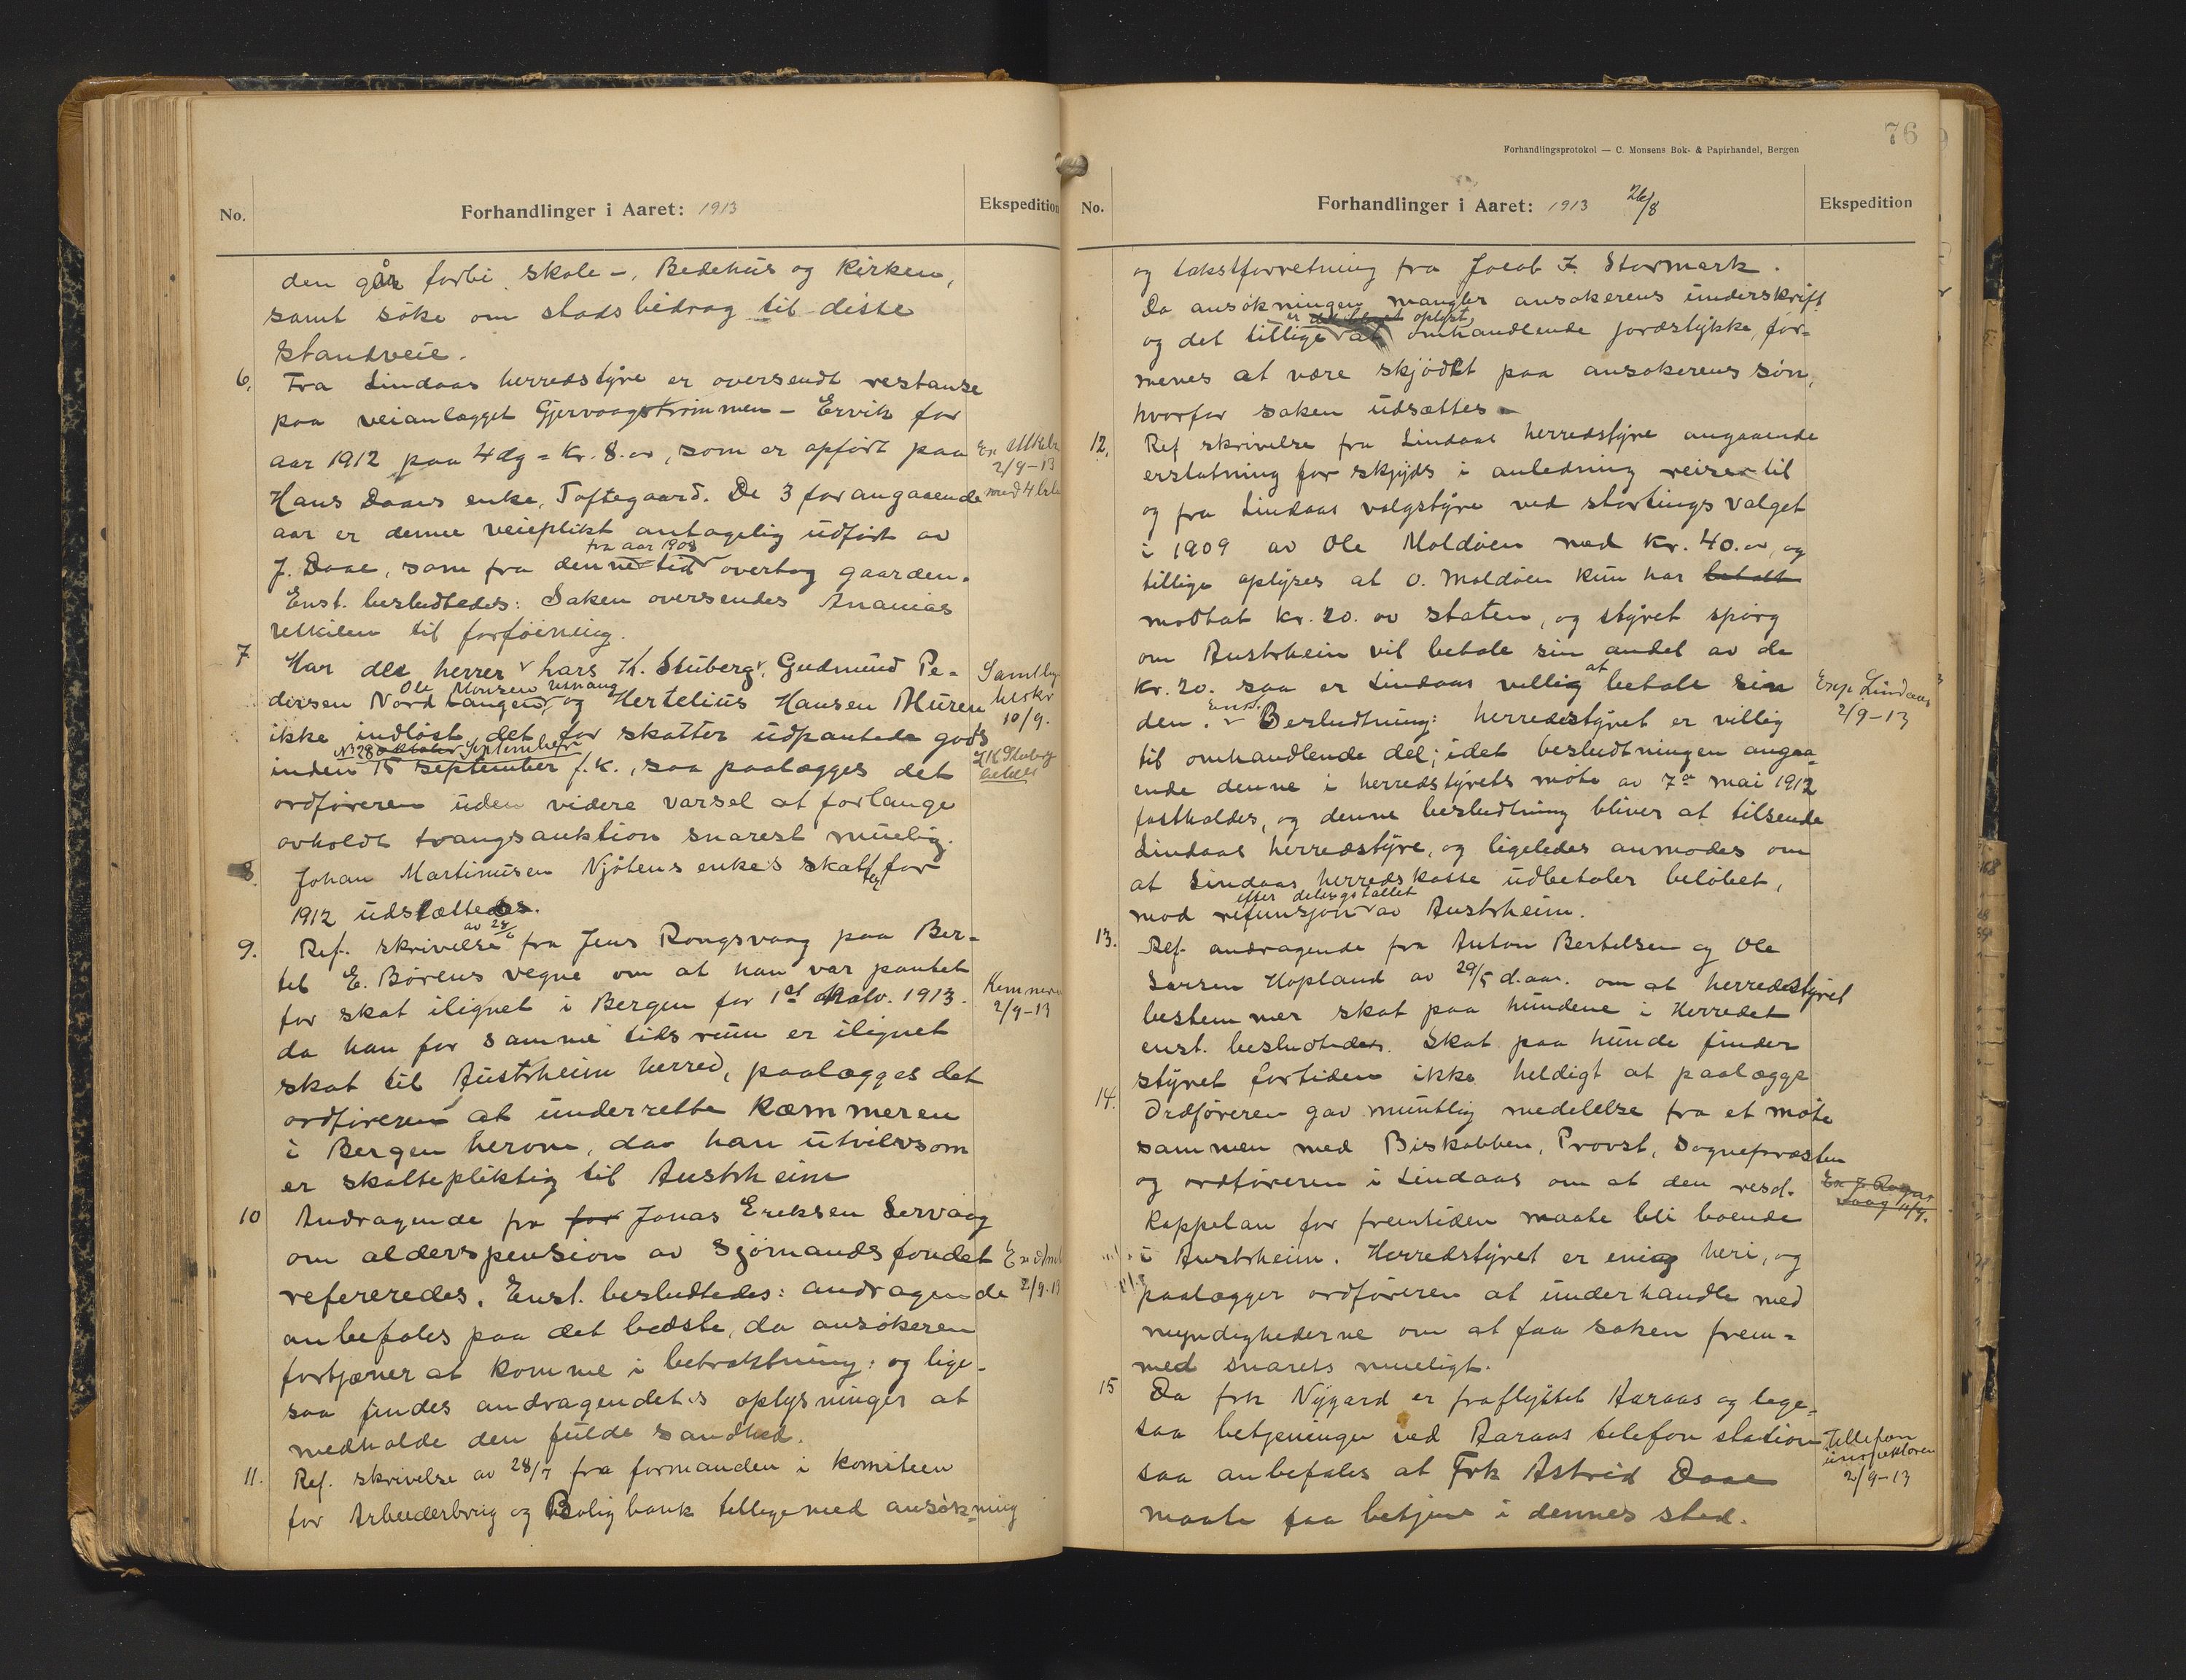 No.
Forhandlinger i Aaret: 1913
Ekspedition
den går forbi skole-, Bedehus og Kirken,
samt söke om stadsbidrag til diste
standveie.
6. Fra Lindaas herredstyre er oversendt restanse
paa veianlægget Gjervaagstrømmen - Ervik for
aar 1912 paa 4 dg = Kr. 8.00, som er opfört paa
Hans Daaes enke, Toftegaard. De 3 forangaaende
aar er denne veieplikt antagelig udfört av
fra aar 1908
J. Daae, som fra denne tid overtog gaarden.
Enst. besludtedes: Saken oversendes Ananias
Utkilen til forföining.
2/9-13
med 4 bilag
7 Har de herrer Lars K. Stuberg, Gudmund Pe-
Ole Monsen Utnang
dersen Nordlangen og Hertelius Hansen Muren
ikke indlöst det for skatter udpantede gods
28 oktober September
inden 15 september f.k., saa paalægges det
ordföreren uden videre varsel at forlange
avholdt tvangsauktion snarest muelig.
Samtlige
beskr
10/9.
LK Stuberg
betalt
8 Johan Martinusen Njötens enkes skatter for
1912 udslættes.
av 28/6
9. Ref. skrivelse fra Jens Rongsvaag paa Ber-
tel E. Börens vegne om at han var pantet
for skat ilignet i Bergen for 1st halv. 1913.
da han for samme tidsrum er ilignet
skat til Austrheim herred, paalægges det
ordföreren at underrette Kæmmeren
i Bergen herom, da han utvilvsom
er skattepliktig til Austrheim
Kemneren
2/9-13
10 Andragende fra for Jonas Eriksen Servaag
om alderspension av Sjömandsfondet
refereredes. Enst. besludtedes: andragende
anbefales paa det bedste, da ansökeren
fortjæner at komme i betraktning: og lige-
saa findes andragendets oplysninger at
medholde den fulde sandhed.
2/9-13
11. Ref. skrivelse av 28/7 fra formanden i komiteen
for Arbeiderbrug og Bolig bank tillegemed ansök=ning
76
Forhandlingsprotokol — C. Monsens Bok- & Papirhandel, Bergen
No.
Forhandlinger i Aaret: 1913 26/8
Ekspedition
og takstforretning fra Jacob J. Stormark.
Da ansökningen mangler ansökerens underskrift
er oplyst
og det tillige at omhandlende jordstykke, for-
menes at være skjödet paa ansökerens sön,
hvorfor saken udsættes
12. Ref skrivelse fra Lindaas herredstyre angaaende
erstatning for skjyds i anledning reiser til
og fra Lindaas valgstyre ved stortings valget
i 1909 av Ole Moldöen med Kr. 40.00, og
tillige oplyses at O. Moldöen kun har betalt
modtat kr. 20. av staten, og styret spörg
om Austrheim vil betale sin andel av de
Kr. 20. saa er Lindaas villig at betale sin
Enst.
den. Besludtning: herredstyret er villig
til omhandlende del; idet besludtningen angaa-
ende denne i herredstyrets möte av 7de mai 1912
fastholdes, og denne besludtning bliver at tilsende
Lindaas herredstyre, og ligeledes anmodes om
at Lindaas herredskasse udbetaler belöbet,
efter delingstallet
mod refunsjon av Austrheim.
Exp Lindaas
2/9-13
13. Ref andragende fra Anton Bertelsen og Ole
Larsen Hopland av 29/5 d.aar. om at herredstyret
bestemmer skat paa hundene i Herredet
enst. besludtedes. Skat paa hunde finder
styret fortiden ikke heldigt at paalægge
14. Ordföreren gav muntlig medelelse fra et möte
sammen med Biskobben, Provst, Sognepræsten
og ordföreren i Lindaas om at den resd.
Kappelan for fremtiden maate bli boende
i Austrheim. Herredstyret er enig heri, og
paalægger ordföreren at underhandle med
myndighederne om at faa saken frem-
med snarets mueligt.
15 Da frk Nygard er fraflyttet Aaraas og lege-
saa betjeningen ved Aaraas telefon station
saa anbefales at Frk Astrid Daae
maate faa betjene i dennes sted.
Tellefon
inspektören
2/9-13